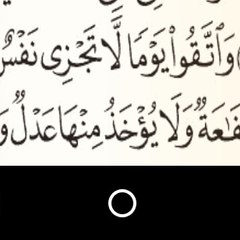 وَٱتَّقُوا۟ يَوْمًا لَّا تَجْزِى نَفْسٌ
فَـٰعَةٌ وَلَا يُؤْخَذُ مِنْهَا عَدْلٌ وَ